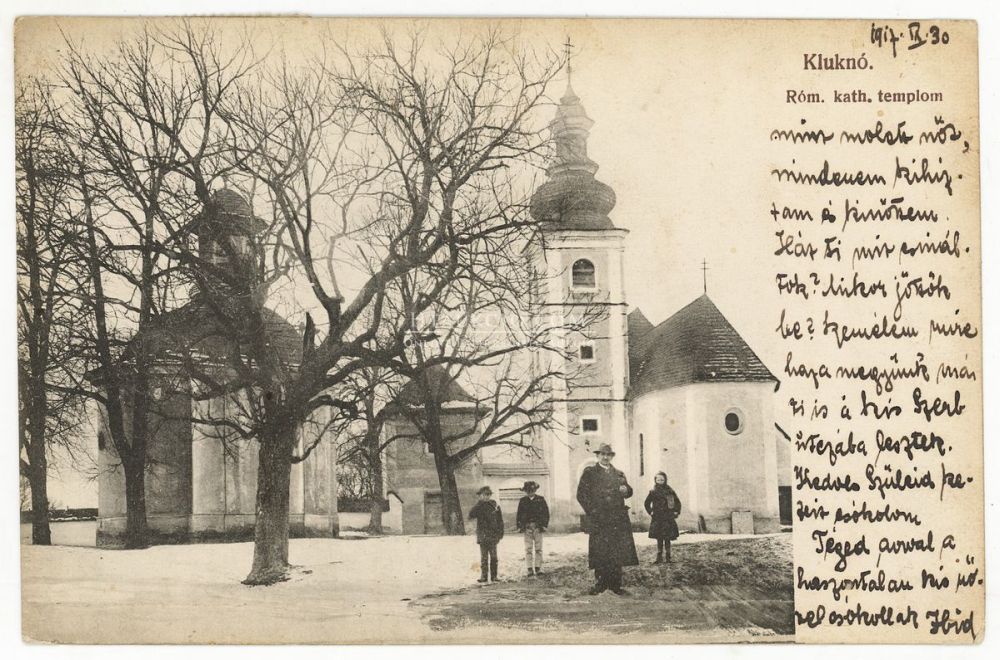 1917. IX. 30
Kluknó.
Róm. kath. templom
mint molett nős,
mindenem kihíz-
tam és kinőttem.
Hát ti mit csinál-
tok? Mikor jöttök
be? Remélem mire
haza megyünk már
ti is a kis Szerb
utczába lesztek.
Kedves Szüleid ke-
zeit csókolom
Téged avval a
haszontalan kis
csókollak